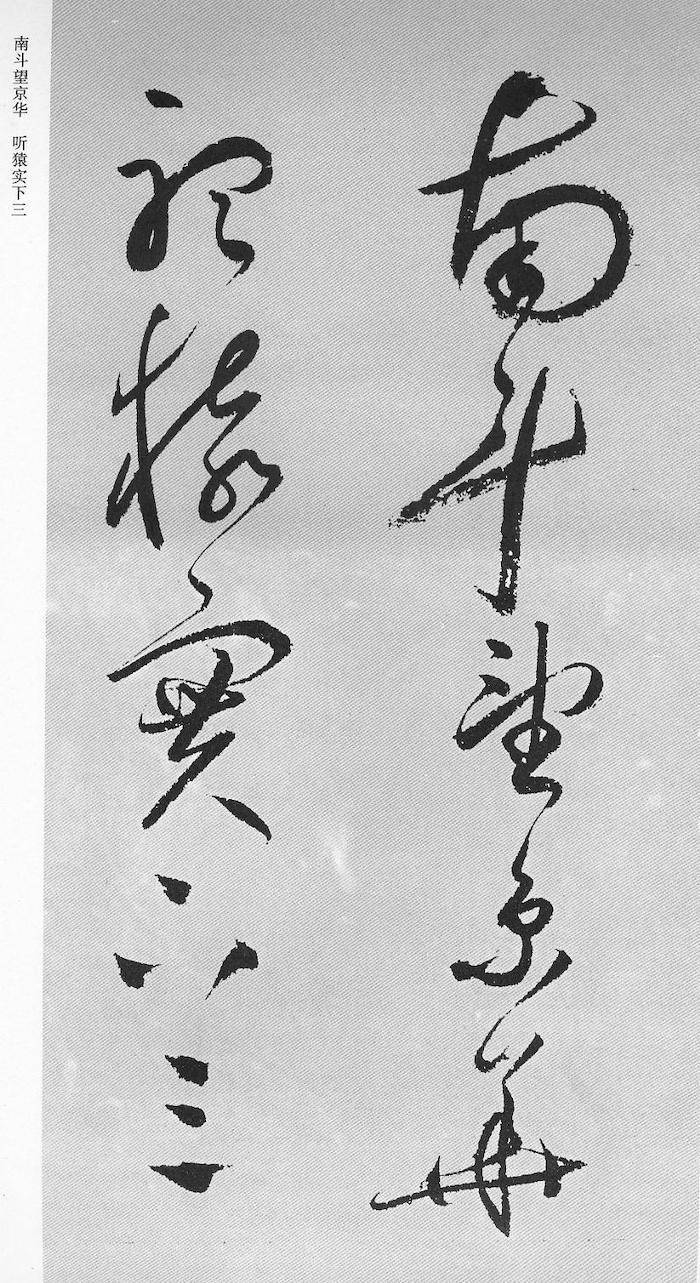 南斗望京华
听猿实下三
南斗望京华 听猿实下三